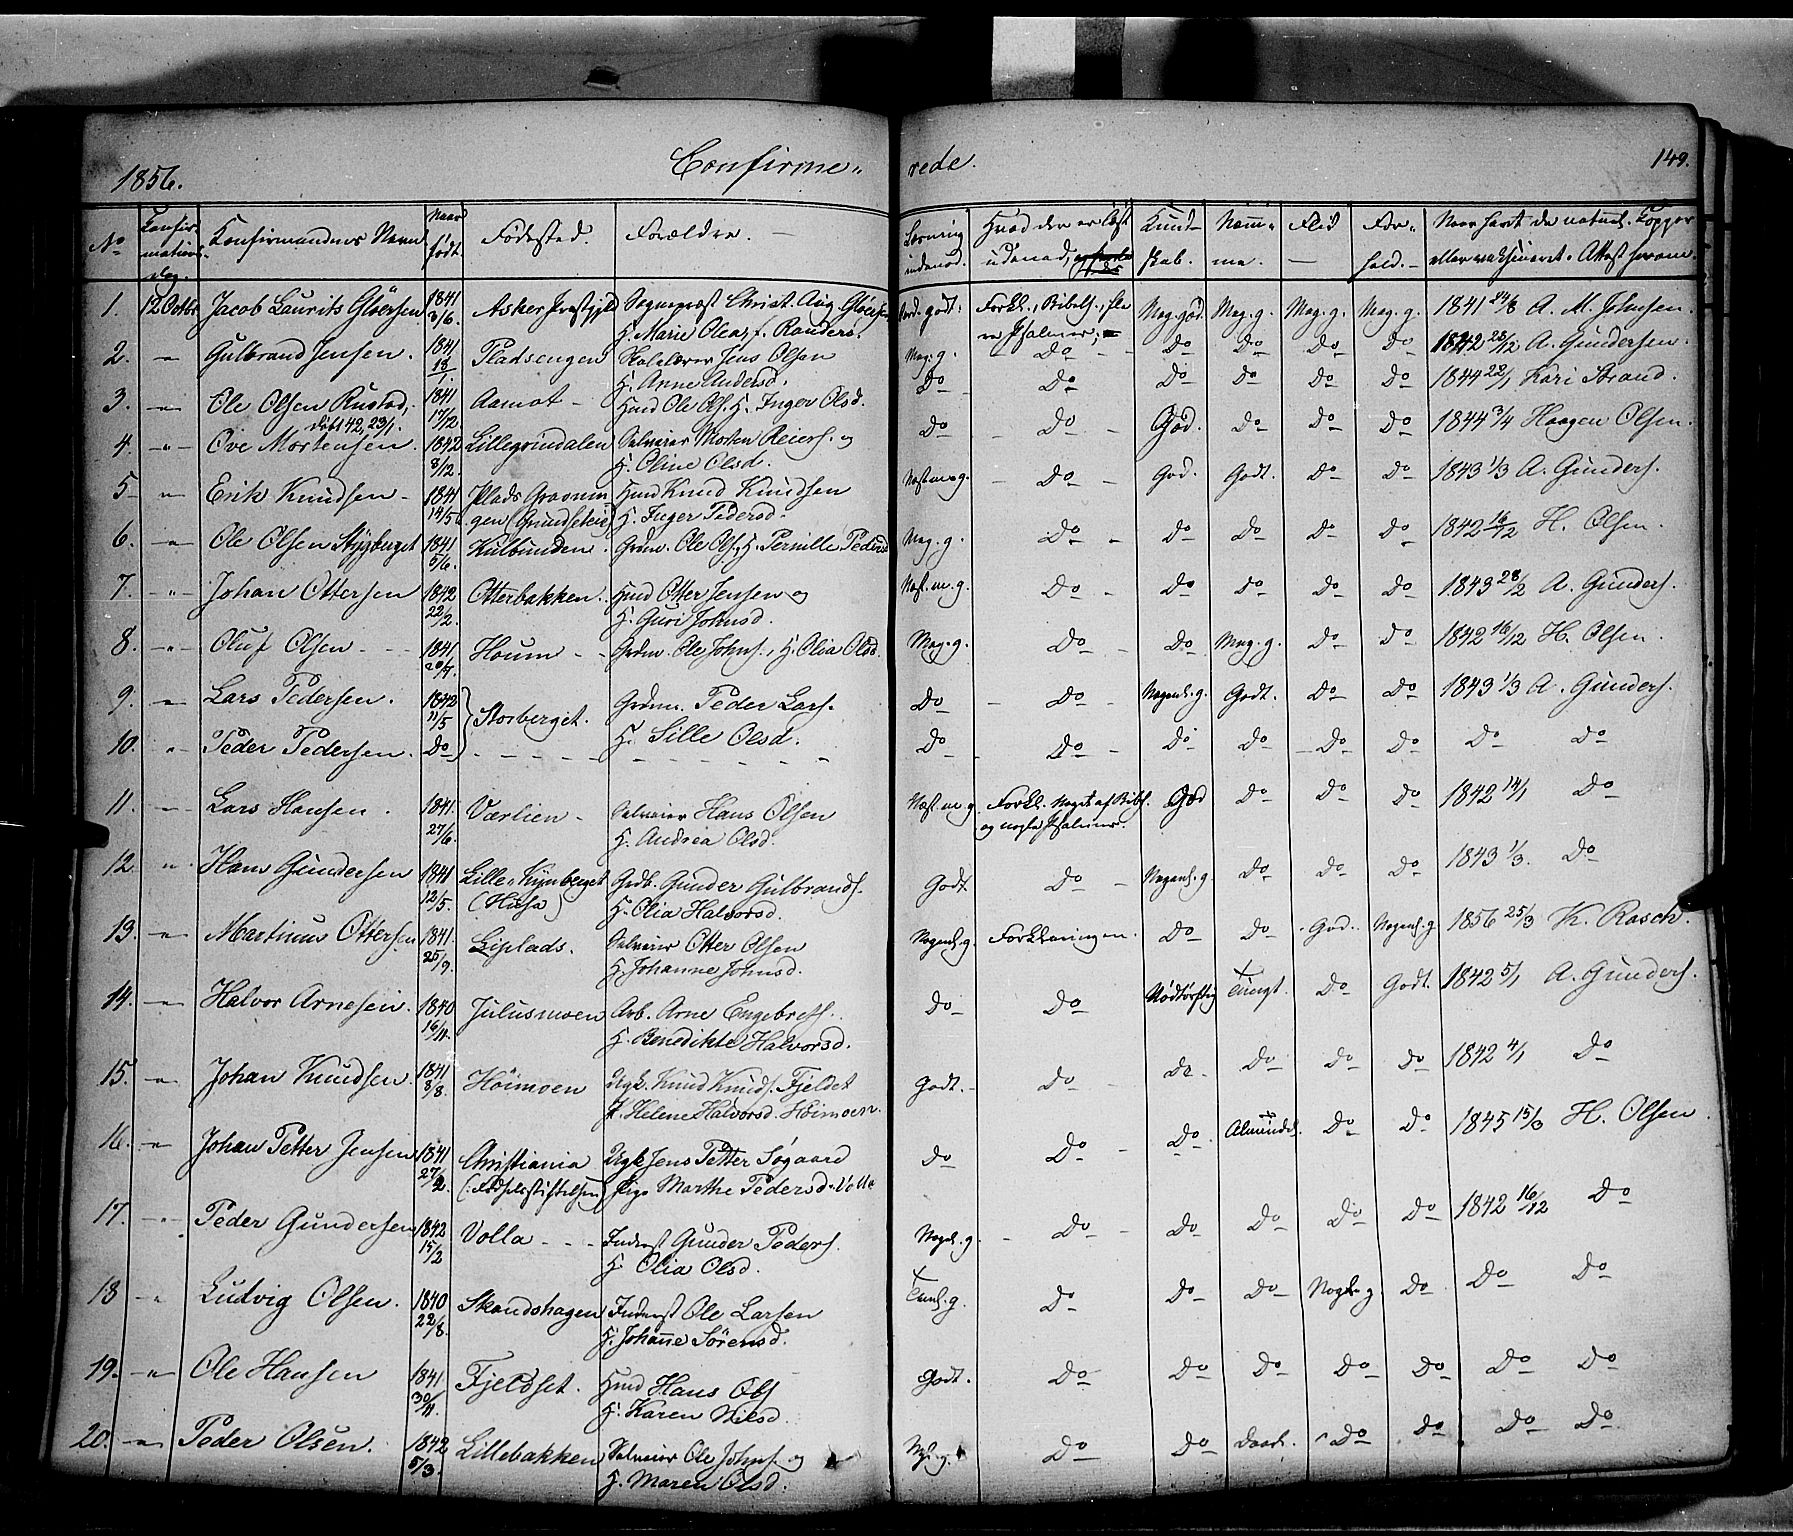 1856. Confirme- rede. 149.
No Konfirmations dag. Konfirmandens Navn Naar født. Fødested. Forældre. Læsning indenad. Hvad der er læst udenad, Kund- skab. Nemm- e. Flid For- hold. Naar havt de naturl. Kopper eller vaksineret. Attest herom.
1. 12 Octbr. Jacob Laurits Gløersen 1841 3/6. Asker Præstgjeld Sognepræst Christ. Aug. Gløersen godt. Forkl., Bibelh., fle Meg. god. Meg. g. Meg. g. Meg. g. 1841 24/8 A. M. Johnsen.
H. Marie Olea f. Randers. re Psalmer,
2. " Gulbrand Jensen. 1841 18/1. Pladsengen Skolelærer Jens Olsen Meg. g. Do Do Do Do Do 1842 28/12 A. Gundersen.
H. Anne Andersd.
3. " Ole Olsen Rustad, 1841 17/2 Aamot - Hmd Ole Ols. H. Inger Olsd. Do Do Do Do Do Do 1844 22/1 Kari Strand.
døbt 42, 23/1.
4. " Ove Mortensen. 1842 8/12. Lillegrindalen Selveier Morten Reiers. og Do Do God. Do Do Do 1844 3/4 Haagen Olsen.
H. Oline Olsd.
5. " Erik Knudsen - 1841 14/5 Plads Graonin Hmd Knud Knudsen Næst.m.g. Do God. Godt. Do Do 1843 1/3 A. Gunders.
gen (Grundseteie) H. Inger Pedersd.
6. " Ole Olsen Stygberget 1841 5/6. Kulbunden. Grdm. Ole Ols., H. Pernille Pedersd Meg. g. Do Do Do Do Do 1842 16/12 H. Olsen.
7. " Johan Ottersen 1842 22/2. Otterbakken. Hmd Otter Jensen og Næst.m.g. Do Do Do Do Do 1843 28/2 A. Gunders.
H. Guri Johnsd.
8. " Oluf Olsen - - 1841 20/7. Houm - - Grdm. Ole Johns., H. Olia Olsd. Meg. g. Do Do Meg. g. Do Do 1842 16/12 H. Olsen.
9. " Lars Pedersen. 1842 11/5 Storberget. Grdm. Peder Lars. Do Do Nogenl. g. Godt. Do Do 1843 1/3 A. Gunders.
H. Sille Olsd.
10. " Peder Pedersen. Do - - - - - - Do Do Do Do Do Do Do Do
11. " Lars Hansen. 1841. 27/6. Værlien - Selveier Hans Olsen Næst. m. g. Forkl. Noget af Bibh. God Do Do Do 1842 14/1 Do
H. Andrea Olsd. og nogle Psalmer.
12. " Hans Gundersen 1841 12/5. Lille-Kynberget Grdb. Gunder Gulbrands. Godt Do Nogenl. g. Do Do Do 1843 1/3. Do
(Husa) H. Olia Halvorsd.
13. " Martinus Ottersen 1841. 25/9. Liplads. Selveier Otter Olsen Nogenl. g. Forklaringen. Do Do God. Nogenl. g. 1856 25/3 K. Rasch.
H. Johanne Johnsd.
14. " Halvor Arnesen. 1840 16/11. Julusmoen Arb. Arne Engebrets. Do Do Nødtørftig Tungt. Do Godt. 1842 5/1 A. Gunders.
H. Benedikte Halvorsd.
15. " Johan Knudsen. 1841 8/8. Höimoen Ugk. Knud Knuds. Fjeldet Godt. Do Do Do Do Do 1842 4/1 Do
P. Helene Halvorsd. Höimoen.
16. " Johan Petter Jensen 1841 27/2. Christiania Ugk Jens Petter Søgaard Do Do Do Almindel. Do Do 1845 15/3 H. Olsen
(: Fødselsstiftelsen) Pige Marthe Pedersd. Volla
17. " Peder Gundersen 1842 15/2 Volla - - - Inderst Gunder Peders. Nogenl. g. Do Do Do Do Do 1842 16/12 Do
H. Olia Olsd.
18 " Ludvig Olsen. 1840 22/8. Skandshagen Inderst Ole Larsen Temml. g. Do Do Do Nogenl. g. Do Do Do
H. Johanne Sörensd.
19. " Ole Hansen 1841 30/11. Fjeldset. Hmd Hans Ols. Godt. Do Do Do Do Do Do Do
H. Karen Nilsd.
20. " Peder Olsen. 1842 5/3. Lillebakken Selveier Ole Johns. og Do Do Do Do Do Do
H. Maren Olsd.